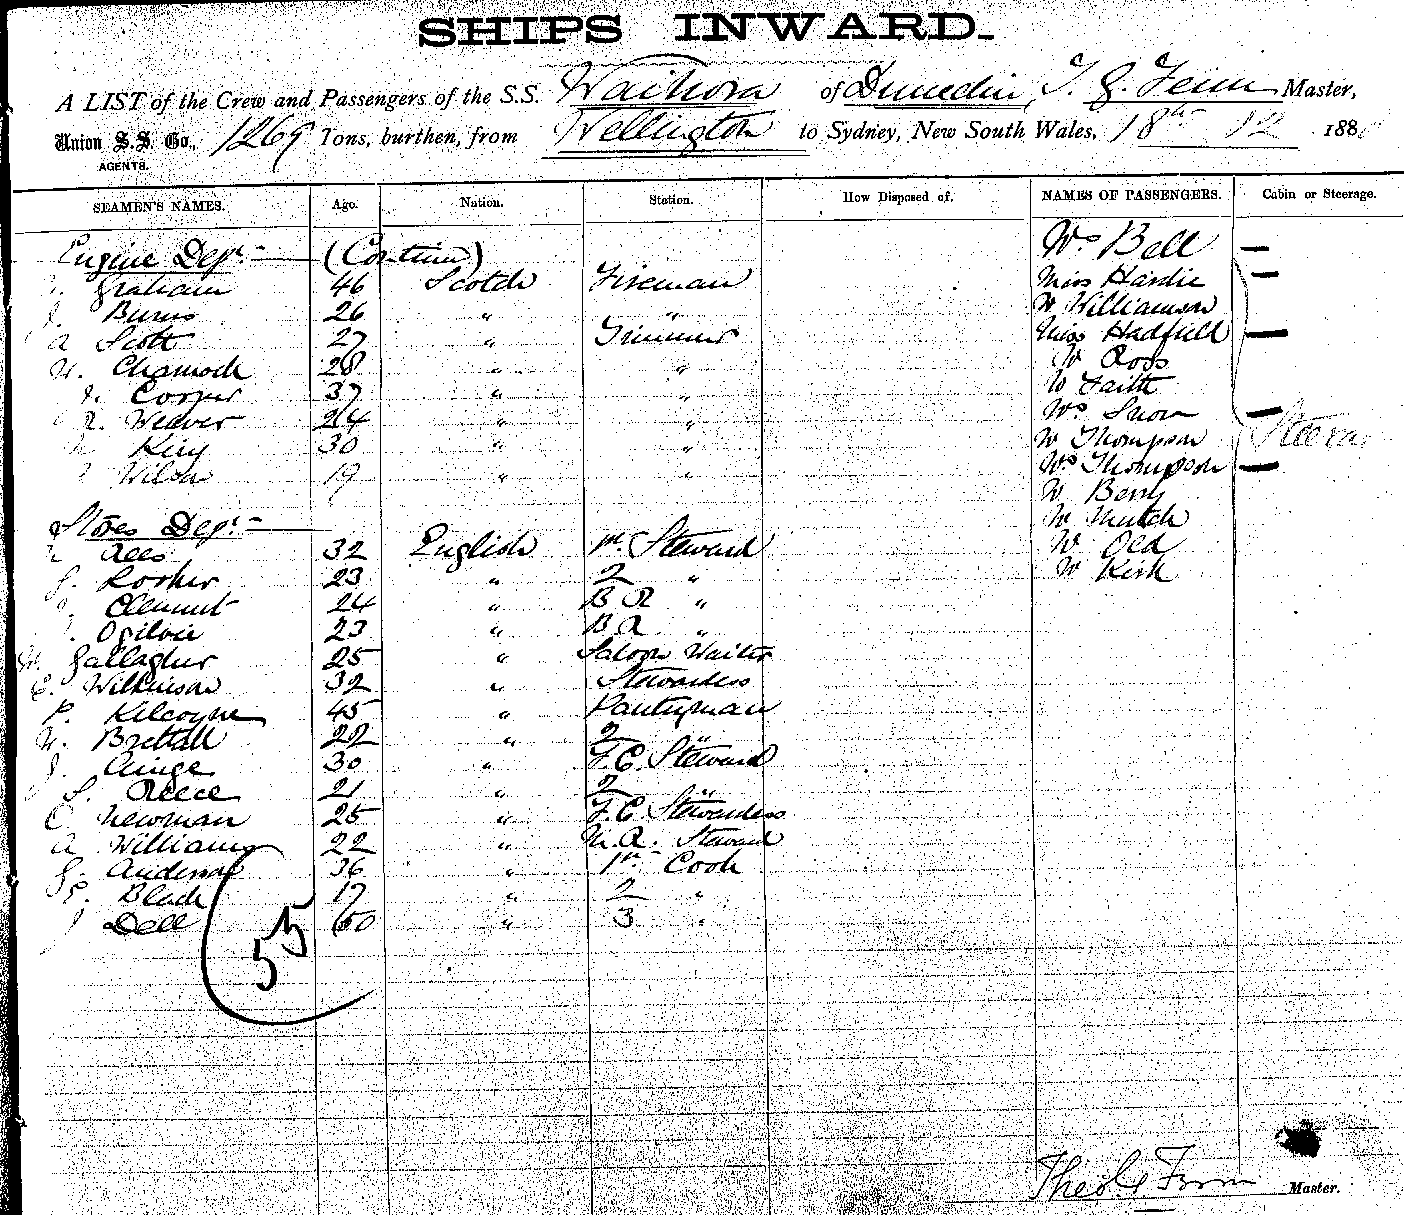 SHIPS INWARD.
A LIST of the Crew and Passengers of the S.S. Waihora of Dunedin, Master,
Union S.S. Co., 1269 Tons, burthen, from Wellington to Sydney, New South Wales, 18th 12 188
AGENTS.
SEAMEN'S NAMES. Age. Nation. Station. How Disposed of. NAMES OF PASSENGERS. Cabin or Steerage.
Mrs Bell —
Engine Dept — (Continue)
Graham 46 Scotch Fireman Miss Hardie —
J. Burns 26 " " Mr Williamson
A Scott 27 " Trimmer Miss Hadfield —
W. Charnock 28 " " Mr Ross
J. Cooper 37 " " Mr Faith
R. Weaver 24 " " Mrs Snow —
King 30 " " Mr Thompson
Wilson 19 " " Mrs Thompson —
Mr Berry
Stores Dept — Mr Mutch
Rees 32 English 1st Steward Mr Old
G. 23 " 2 " Mr Kirk
Clement 24 " B R "
Ogilvie 23 " B R "
Gallagher 25 " Saloon Waiter
E. Wilkinson 32 " Stewardess
P. Kilcoyne 45 " Pantryman
W. Brettall 22 " 2 "
J. Ainge 30 " F.C. Steward
S. Reece 21 " 2 "
C Newman 25 " F.C. Stewardess
A Williams 22 " M.R. Steward
G. Anderson 36 " 1st Cook
Black 17 " 2 "
J Dell 60 " 3 "
55
Master.